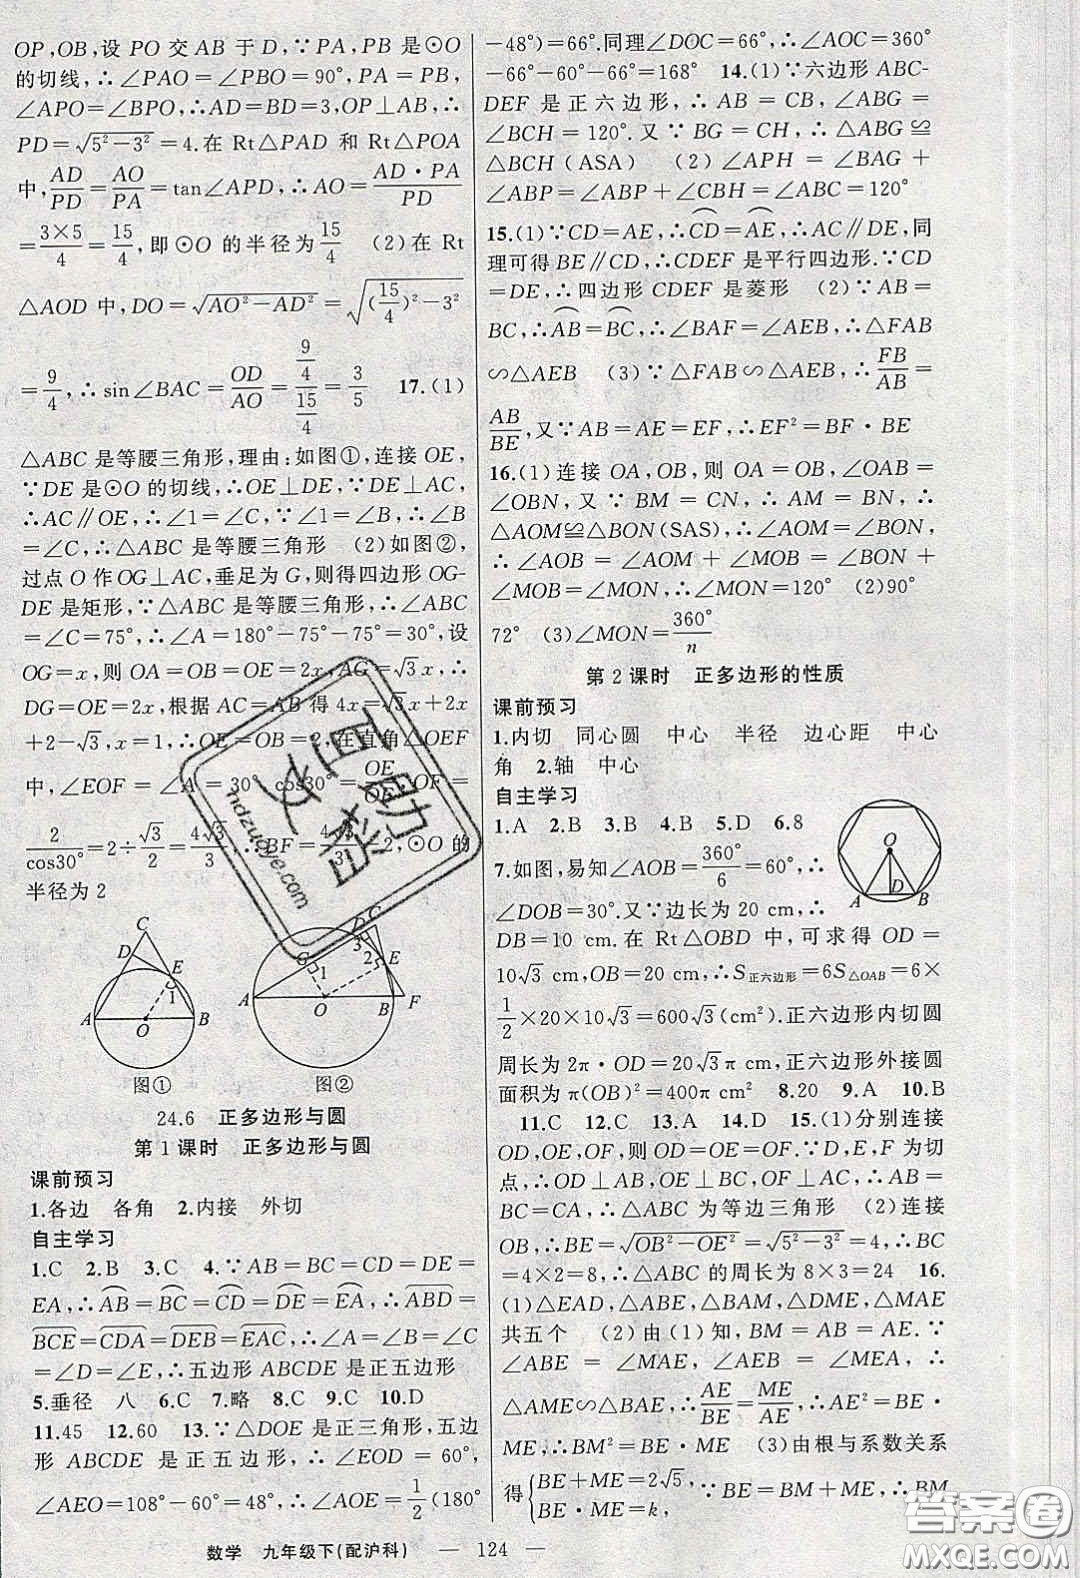 OP,OB,设 PO 交 AB 于 D,∵PA,PB 是⊙O
的切线,∴∠PAO=∠PBO=90°,PA=PB,
∠APO=∠BPO,∴AD=BD=3,OP⊥AB,∴
PD=√(5²-3²)=4.在 Rt△PAD 和 Rt△POA
中,AD/PD=AO/PA=tan∠APD,∴AO=AD·PA/PD
=3×5/4=15/4,即⊙O 的半径为15/4 (2)在 Rt
△AOD 中,DO=√(AO²-AD²)=√((15/4)²-3²)
=9/4,∴sin∠BAC=OD/AO=(9/4)/(15/4)=3/5 17.(1)
△ABC 是等腰三角形,理由:如图①,连接 OE,
∵DE 是⊙O 的切线,∴OE⊥DE,∵DE⊥AC,
∴AC∥OE,∴∠1=∠C,∵∠1=∠B,∴∠B
=∠C,∴△ABC 是等腰三角形 (2)如图②,
过点 O 作 OG⊥AC,垂足为 G,则得四边形 OG-
DE 是矩形,∵△ABC 是等腰三角形,∴∠ABC
=∠C=75°,∴∠A=180°-75°-75°=30°,设
OG=x,则 OA=OB=OE=2x,AG=√3x,∴
DG=OE=2x,根据 AC=AB 得 4x=√3x+2x
+2-√3,x=1,∴OE=OB=2,在直角△OEF
中,∠EOF=∠A=30° cos30°=OE/OF,OF=
2/cos30°=2÷√3/2=4√3/3,∴BF=4√3/3-2,⊙O 的
半径为 2
C
D
E
1
A
O
B
图①
D C
G
3
2
E
1
A
O
B
F
图②
24.6 正多边形与圆
第 1 课时 正多边形与圆
课前预习
1.各边 各角 2.内接 外切
自主学习
1.C 2.B 3.C 4.∵AB=BC=CD=DE=
EA,∴AB=BC=CD=DE=EA,∴ABD=
BCE=CDA=DEB=EAC,∴∠A=∠B=∠C
=∠D=∠E,∴五边形 ABCDE 是正五边形
5.垂径 八 6.C 7.略 8.C 9.C 10.D
11.45 12.60 13.∵△DOE 是正三角形,五边
形 ABCDE 是正五边形,∴∠EOD=60°,
∠AEO=108°-60°=48°,∴∠AOE=1/2(180°
-48°)=66°.同理∠DOC=66°,∴∠AOC=360°
-66°-60°-66°=168° 14.(1)∵六边形 ABC-
DEF 是正六边形,∴AB=CB,∠ABG=
∠BCH=120°.又∵BG=CH,∴△ABG≌
△BCH(ASA) (2)∠APH=∠BAG+
∠ABP=∠ABP+∠CBH=∠ABC=120°
15.(1)∵CD=AE,∴CD=AE,∴AC∥DE,同
理可得 BE∥CD,∴CDEF 是平行四边形.∵CD
=DE,∴四边形 CDEF 是菱形 (2)∵AB=
BC,∴AB=BC,∴∠BAF=∠AEB,∴△FAB
∽△AEB (3)∵△FAB∽△AEB,∴FB/AB=
AB/BE,又∵AB=AE=EF,∴EF²=BF·BE
16.(1)连接 OA,OB,则 OA=OB,∠OAB=
∠OBN,又∵BM=CN,∴AM=BN,∴
△AOM≌△BON(SAS),∴∠AOM=∠BON,
∴∠AOB=∠AOM+∠MOB=∠BON+
∠MOB=∠MON,∴∠MON=120° (2)90°
72° (3)∠MON=360°/n
第 2 课时 正多边形的性质
课前预习
1.内切 同心圆 中心 半径 边心距 中心
角 2.轴 中心
自主学习
1.A 2.B 3.B 4.B 5.D 6.8
7.如图,易知∠AOB=360°/6=60°,∴
∠DOB=30°.又∵边长为 20 cm,∴
DB=10 cm.在 Rt△OBD 中,可求得 OD=
10√3 cm,OB=20 cm,∴S正六边形=6S△OAB=6×
1/2×20×10√3=600√3(cm²).正六边形内切圆
周长为 2π·OD=20√3π cm,正六边形外接圆
面积为 π(OB)²=400π cm² 8.20 9.A 10.B
11.C 12.C 13.A 14.D 15.(1)分别连接
OD,OE,OF,则 OD=OE=OF.∵D,E,F 为切
点,∴OD⊥AB,OE⊥BC,OF⊥AC,∴AB=
BC=CA,∴△ABC 为等边三角形 (2)连接
OB,∴BE=√(OB²-OE²)=√(5²-3²)=4,∴BC
=4×2=8,∴△ABC 的周长为 8×3=24 16.
(1)△EAD,△ABE,△BAM,△DME,△MAE
共五个 (2)由(1)知,BM=AB=AE.∵
∠ABE=∠MAE,∠AEB=∠MEA,∴
△AME∽△BAE,∴AE/BE=ME/AE,∴AE²=BE·
ME,∴BM²=BE·ME (3)由根与系数关系
得{BE+ME=2√5, BE·ME=k, ∵BE=BM+ME,∴BM
O
A
D
B
数学 九年级下(配沪科) — 124 —
答案圈